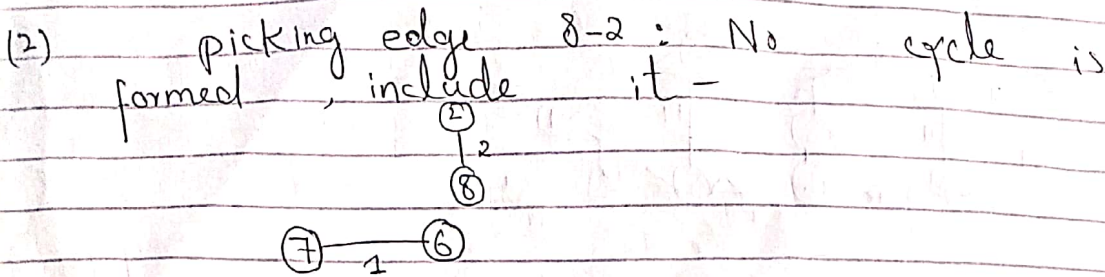 (2) picking edge 8-2 : No cycle is
formed , include it -
2
2
8
7 6
1